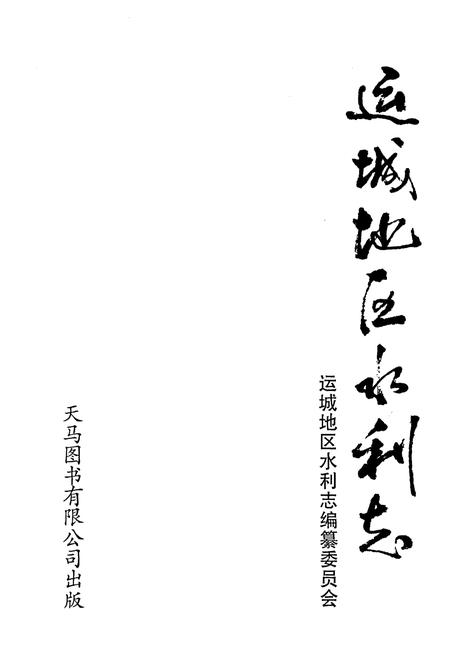 运城地区水利志
运城地区水利志编纂委员会
天马图书有限公司出版